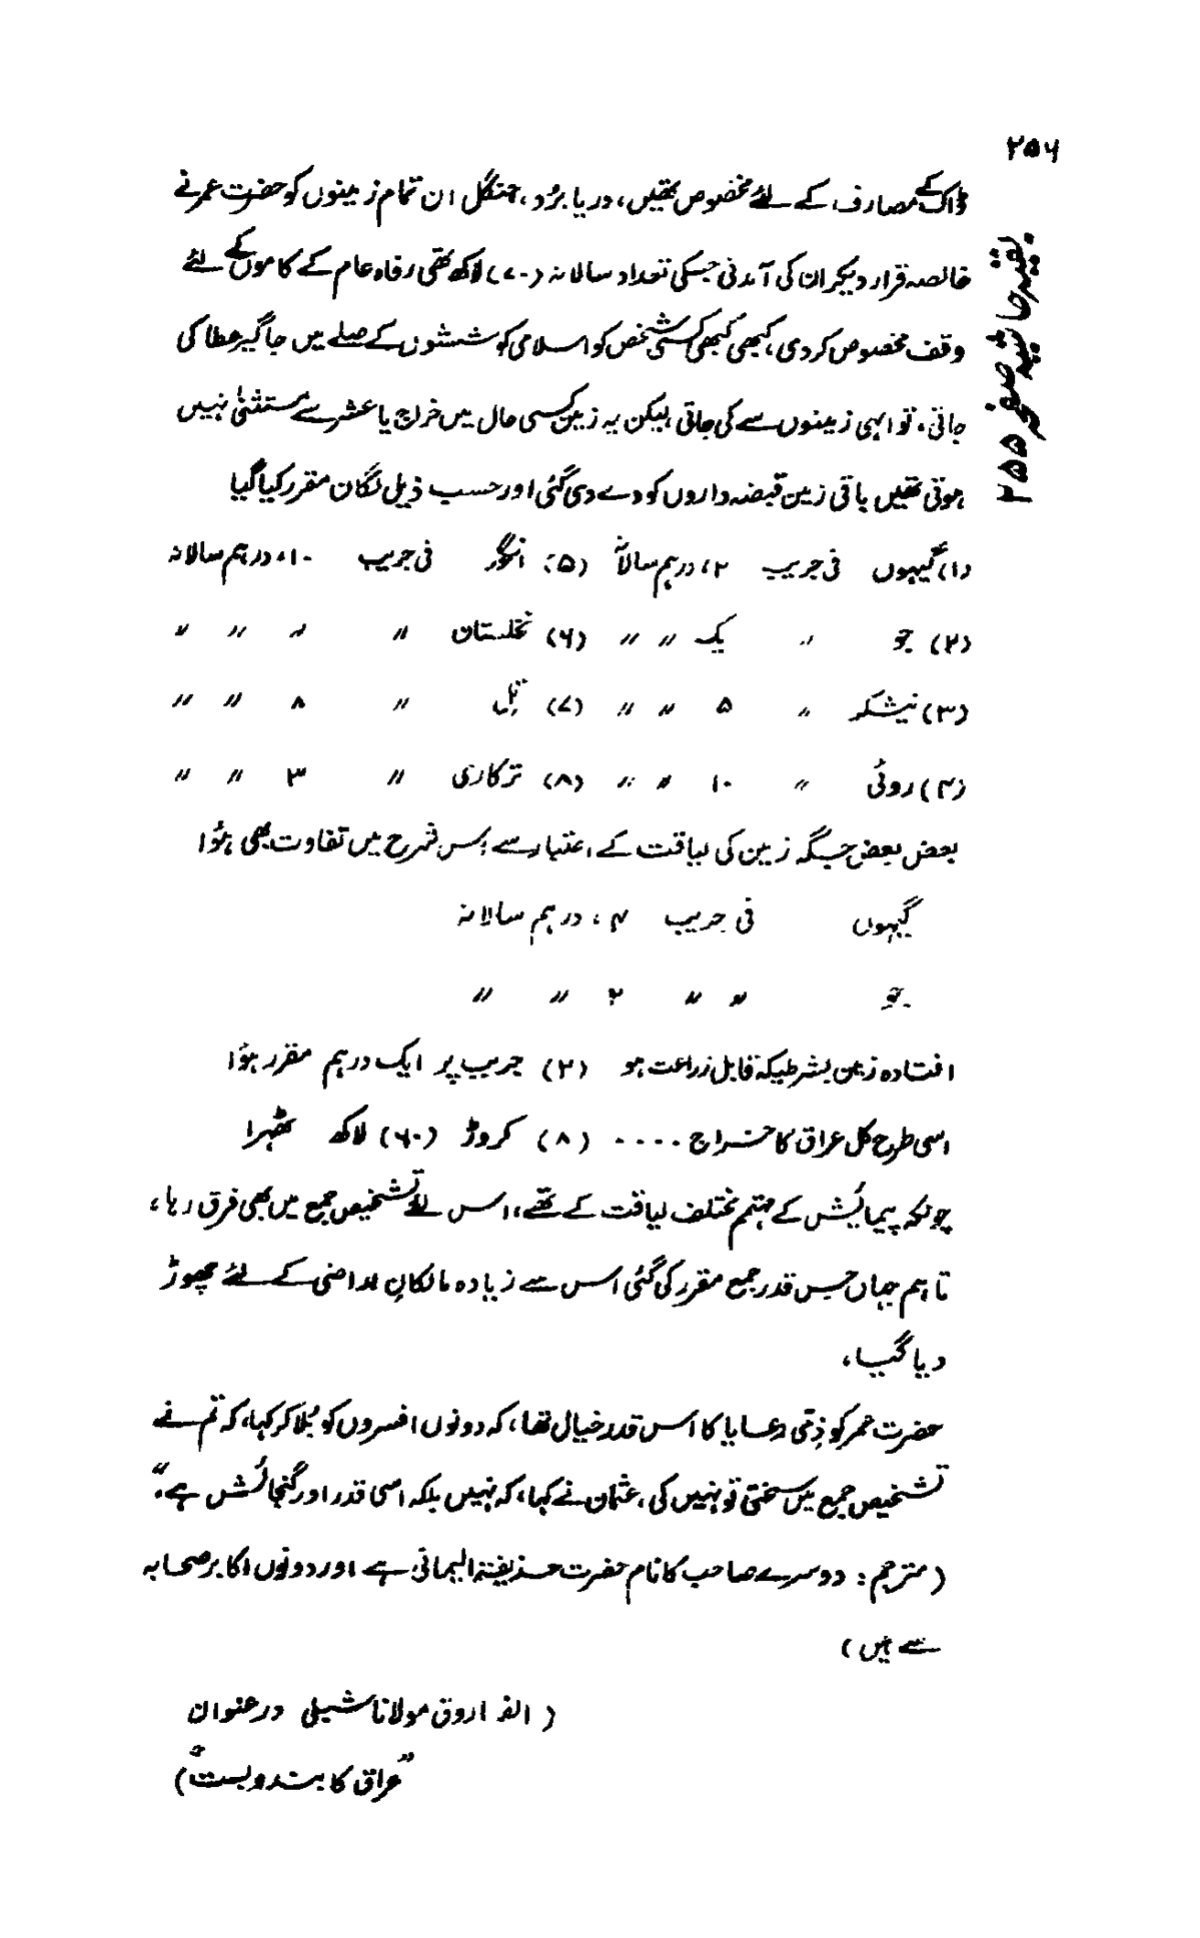 ۲۵۶
بقیہ حاشیہ صفحہ ۲۵۵
ڈاک کے مصارف کے لئے مخصوص تھیں، دریا برد، جنگل ان تمام زمینوں کو حضرت عمر نے
خالصہ قرار دیکر ان کی آمدنی جسکی تعداد سالانہ (۷۰) لاکھ تھی رفاہ عام کے کاموں کے لئے
وقف مخصوص کر دی، کبھی کبھی کسی شخص کو اسلامی کوششوں کے صلے میں جاگیر عطا کی
جاتی، تو انہی زمینوں سے کی جاتی لیکن یہ زمین کسی حال میں خراج یا عشر سے مستثنیٰ نہیں
ہوتی تھیں باقی زمین قبضہ داروں کو دے دی گئی اور حسب ذیل لگان مقرر کیا گیا
(۱) گیہوں فی جریب ۲، درہم سالانہ (۵) انگور فی جریب ۱۰، درہم سالانہ
(۲) جو 〃 یک 〃 〃 (۶) نخلستان 〃 〃 〃 〃
(۳) نیشکر 〃 ۵ 〃 〃 (۷) تِل 〃 ۸ 〃 〃
(۴) روئی 〃 ۱۰ 〃 〃 (۸) ترکاری 〃 ۳ 〃 〃
بعض بعض جگہ زمین کی لیاقت کے اعتبار سے اس شرح میں تفاوت بھی ہوُا
گیہوں فی جریب ۴، درہم سالانہ
جو 〃 〃 ۲ 〃 〃
افتادہ زمین بشرطیکہ قابل زراعت ہو (۲) جریب پر ایک درہم مقرر ہوُا
اسی طرح کل عراق کا خراج .... (۸) کروڑ (۶۰) لاکھ ٹھہرا
چونکہ پیمائش کے مہتمم مختلف لیاقت کے تھے، اس لئے تشخیص جمع میں بھی فرق رہا،
تاہم جہاں جس قدر جمع مقرر کی گئی اس سے زیادہ مالکانِ اراضی کے لئے چھوڑ
دیا گیا،
حضرت عمر کو ذِمّی رعایا کا اس قدر خیال تھا، کہ دونوں افسروں کو بُلا کر کہا، کہ تم نے
تشخیص جمع میں سختی تو نہیں کی، عثمان نے کہا، کہ نہیں بلکہ اسی قدر اور گنجائش ہے"
(مترجم: دوسرے صاحب کا نام حضرت حذیفۃ الیمانی ہے اور دونوں اکابر صحابہ
سے ہیں)
(الفاروق مولانا شبلی در عنوان
"عراق کا بندوبست")